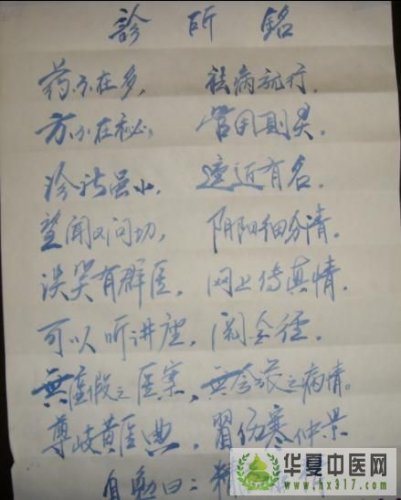 診所銘
药不在多，祛病就行．
方不在秘，管用则灵．
诊所虽小，远近有名．
望闻又问切，阴阳细分清．
谈笑有群医，网上传真情．
可以听讲座，阅金径．
無虚假之医案，無夸张之病情。
尊岐黄医典，習伤寒仲景
自勉曰：
华夏中医网
www.hx317.com